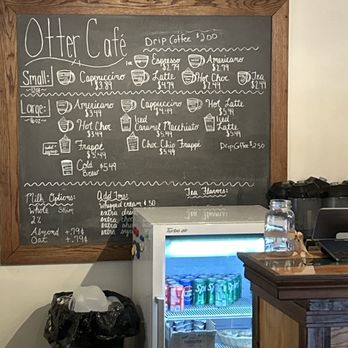 Otter Café
Drip Coffee $2.00
Small:
Espresso $2.79
Americano $2.79
Cappuccino $3.89
Latte $4.79
Hot Choc $2.49
Tea $2.49
Large:
Americano $3.49
Cappuccino $4.49
Hot Latte $5.49
Hot Choc $3.49
Iced Caramel Macchiato $5.49
Iced Latte $5.49
Frappé $5.49
Choc Chip Frappé $5.49
Drip Coffee $2.50
Cold Brew $5.49
Milk Options:
Add Ins:
Tea Flavors:
whole Skim
whipped cream $.50
2%
extra
extra
Almond +.79¢
extra
Oat +.79¢
extra